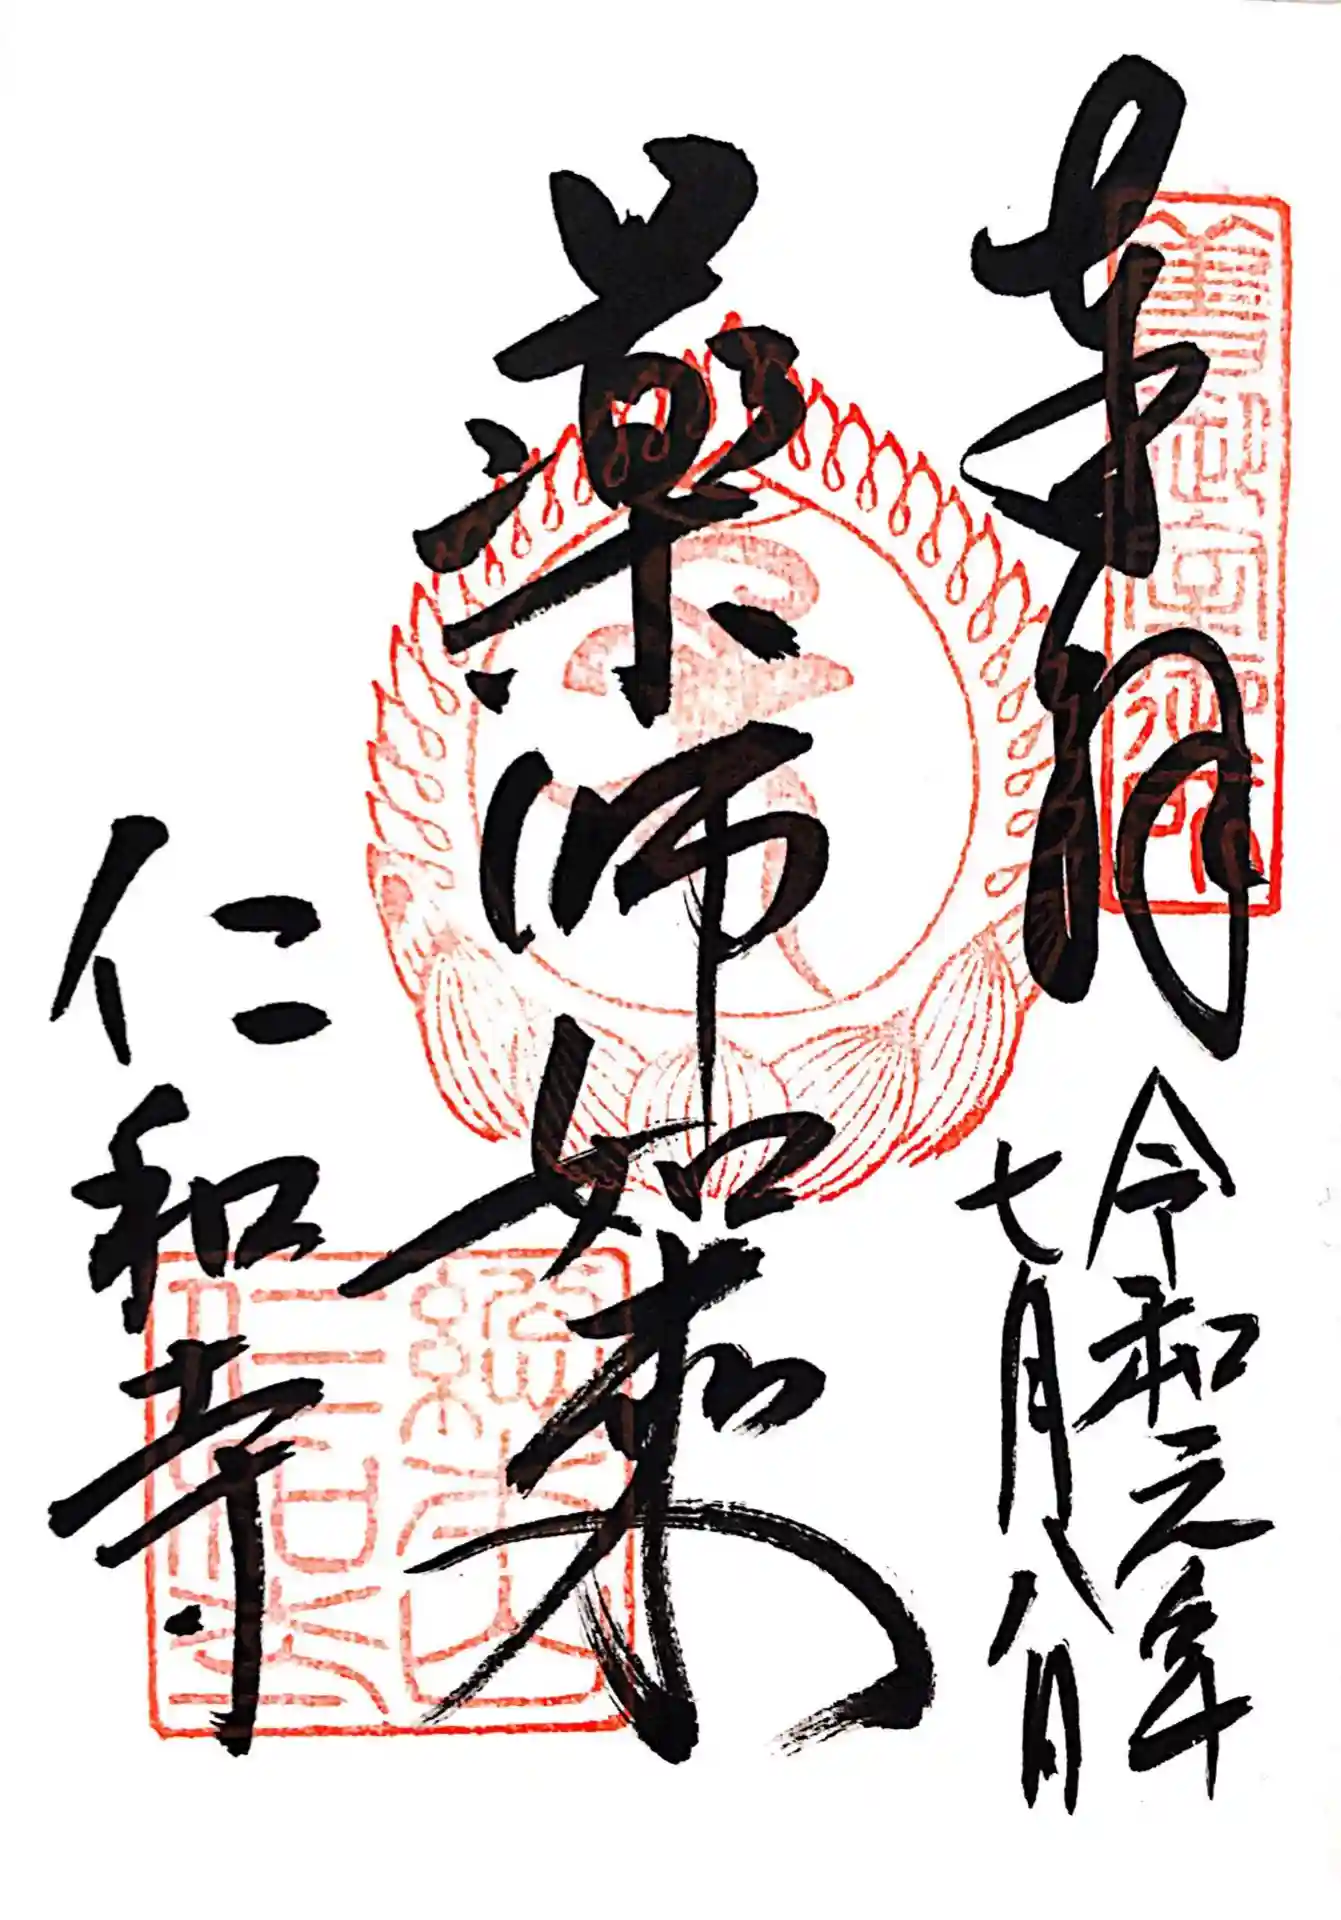 奉拝
令和元年
七月八日
薬師如来
仁和寺